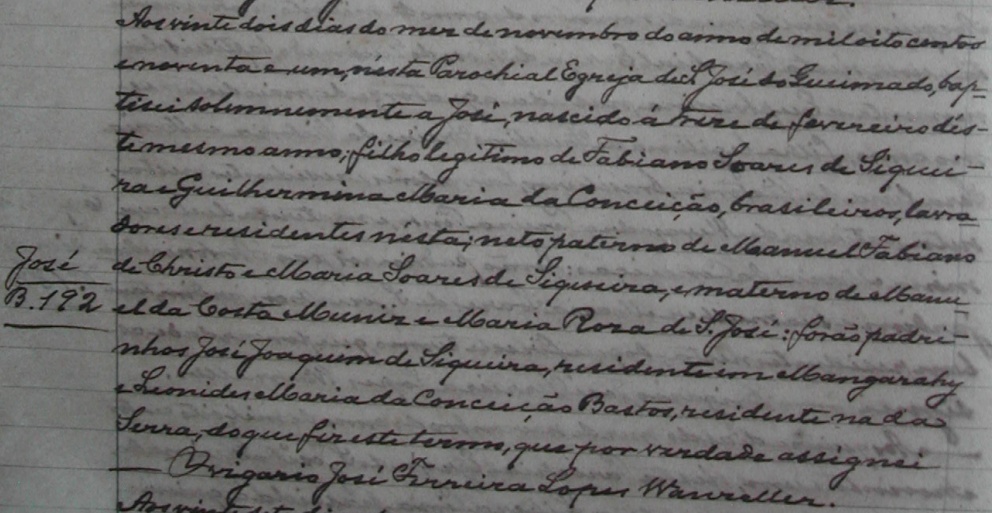 Aos vinte dois dias do mez de novembro do anno de mil oito centos
e noventa e um, nésta Parochial Egreja de S. José do Queimado, bap-
tisei solemnemente a José, nascido á treze de fevereiro dés-
te mesmo anno; filho legitimo de Fabiano Soares de Siquei-
ra e Guilhermina Maria da Conceição, brasileiros, lavra
dores e residentes nésta; neto paterno de Manuel Fabiano
José
B. 192
de Christo e Maria Soares de Siqueira, e materno de Manu
el da Costa Muniz e Maria Roza de S. José: forão padri-
nhos José Joaquim de Siqueira, residente em Mangarahy
e Leonides Maria da Conceição Bastos, residente na da
Serra, do que fiz este termo, que por verdade assignei
— O vigario José Ferreira Lopes Wanzeller.
Aos vinte